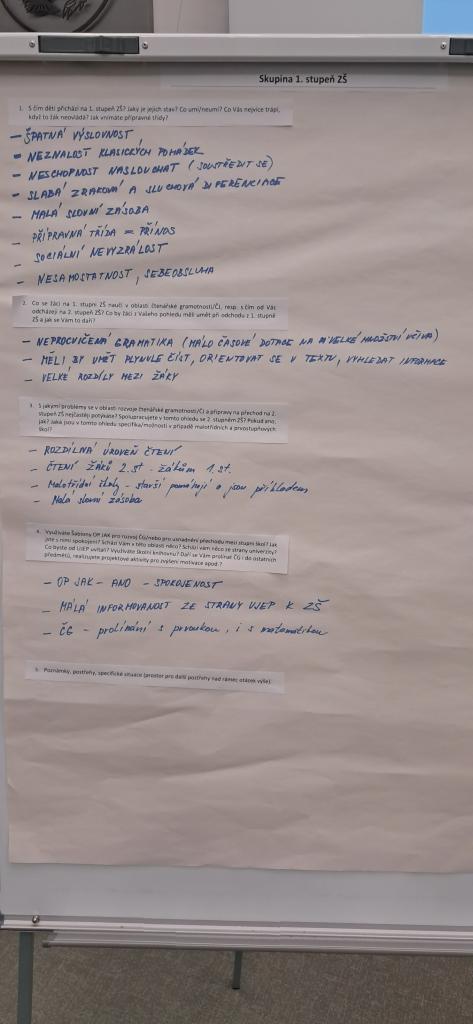 Skupina 1. stupeň ZŠ
1. S čím děti přichází na 1. stupeň ZŠ? Jaký je jejich stav? Co umí/neumí? Co Vás nejvíce trápí,
když to žák neovládá? Jak vnímáte přípravné třídy?
- ŠPATNÁ VÝSLOVNOST
- NEZNALOST KLASICKÝCH POHÁDEK
- NESCHOPNOST NASLOUCHAT (SOUSTŘEDIT SE)
- SLABÁ ZRAKOVÁ A SLUCHOVÁ DIFERENCIACE
- MALÁ SLOVNÍ ZÁSOBA
- PŘÍPRAVNÁ TŘÍDA = PŘÍNOS
- SOCIÁLNÍ NEVYZRÁLOST
- NESAMOSTATNOST, SEBEOBSLUHA
2. Co se žáci na 1. stupni ZŠ naučí v oblasti čtenářské gramotnosti/ČJ, resp. s čím od Vás
odcházejí na 2. stupeň ZŠ? Co by žáci z Vašeho pohledu měli umět při odchodu z 1. stupně
ZŠ a jak se Vám to daří?
- NEPROCVIČENÁ GRAMATIKA (MÁLO ČASOVÉ DOTACE NA VELKÉ MNOŽSTVÍ UČIVA)
- MĚLI BY UMĚT PLYNULE ČÍST, ORIENTOVAT SE V TEXTU, VYHLEDAT INFORMACE
- VELKÉ ROZDÍLY MEZI ŽÁKY
3. S jakými problémy se v oblasti rozvoje čtenářské gramotnosti/ČJ a přípravy na přechod na 2.
stupeň ZŠ nejčastěji potýkáte? Spolupracujete v tomto ohledu se 2. stupněm ZŠ? Pokud ano,
jak? Jaká jsou v tomto ohledu specifika/možnosti v případě malotřídních a prvostupňových
škol?
- ROZDÍLNÁ ÚROVEŇ ČTENÍ
- ČTENÍ ŽÁKŮ 2. st - žákům 1. st.
- Malotřídní školy - starší pomáhají a jsou příkladem
- Malá slovní zásoba
4. Využíváte Šablony OP JAK pro rozvoj ČG/nebo pro usnadnění přechodu mezi stupni škol? Jak
jste s nimi spokojeni? Schází Vám v této oblasti něco? Schází vám něco ze strany univerzity?
Co byste od UJEP uvítali? Využíváte školní knihovnu? Daří se Vám prolínat ČG i do ostatních
předmětů, realizujete projektové aktivity pro zvýšení motivace apod.?
- OP JAK - ANO - SPOKOJENOST
- MÁLÁ INFORMOVANOST ZE STRANY UJEP K ZŠ
- ČG - prolínání s prvoukou, i s matematikou
5. Poznámky, postřehy, specifické situace (prostor pro další postřehy nad rámec otázek výše).